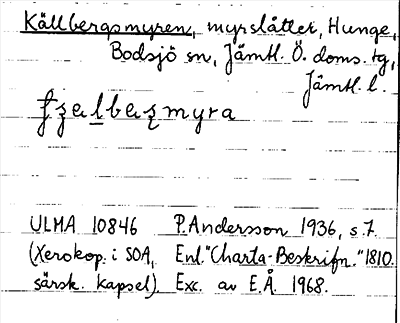 Källbergsmyren, myrslåtter, Hunge,
Bodsjö sn, Jämtl. Ö. doms. tg,
Jämtl. l.
ULMA 10846 P. Andersson 1936, s. 7.
(Xerokop. i SOA, Enl. "Charta-Beskrifn." 1810.
särsk. kapsel). Exc. av E.Å. 1968.